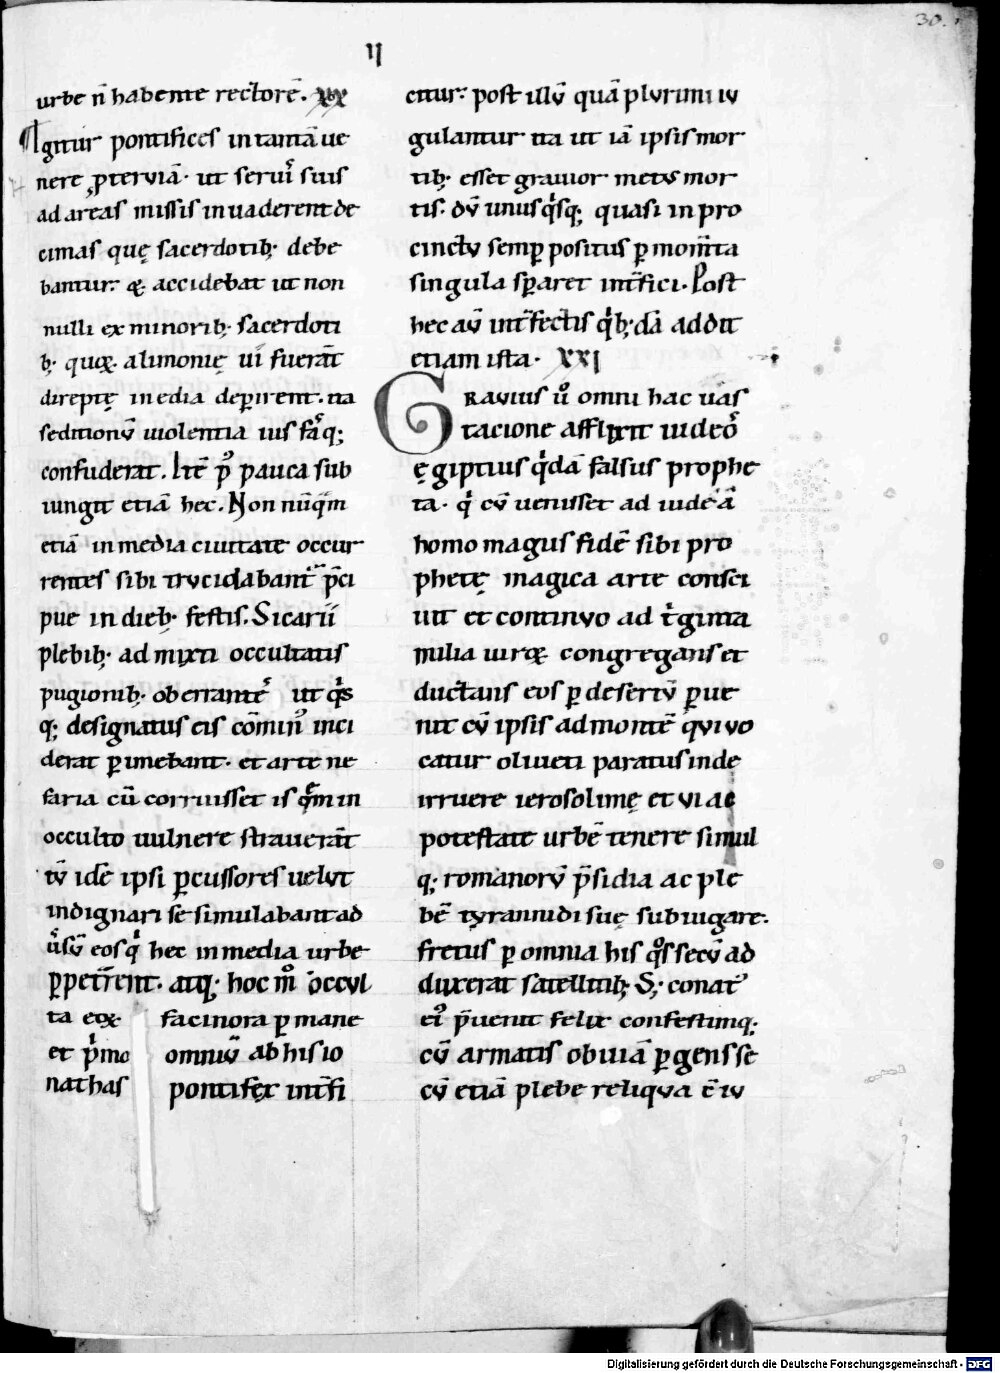 30.
II
urbe n̄ habente rectorē. XX
Igitur pontifices in tantā ue
nere ꝓteruiā. ut serui suis
ad areas missis inuaderent de
cimas quę sacerdotib; debe
bantur. & accidebat ut non
nulli ex minorib; sacerdoti
b; quoꝝ alimonię ui fuerāt
direptę inedia deꝑirent. na
seditionū uiolentia ius fasq;
confuderat. Itē p᷒ pauca sub
iungit etiā hec. Non nūqām
etiā in media ciuitate occur
rentes sibi trucidabant p̄ci
pue in dieb; festis. Sicarii
plebib; admixti occultatis
pugionib; oberrantes ut qis
q; designatus eis cōmin᷒ inci
derat ꝑimebant. et arte ne
faria cū corruisset is quēm in
occulto uulnere strauerāt
tū idē ipsi ꝑcussores uelut
indignari se simulabant ad
uersū eos qi hec in media urbe
ꝑpetrent. atq; hoc mo occul
ta eoꝝ facinora ꝑmane
et primo omniū ab his io
nathas pontifex int̄fi
citur. post illū quā plurimi iu
gulantur ita ut iā ipsis mor
tib; esset grauior metus mor
tis. dū unusqisq; quasi in pro
cinctu semꝑ positus ꝑ mom̄ta
singula sꝑaret int̄fici. Post
hec aū int̄fectis qib;dā addit
etiam ista. XXI
Grauius uo omni hac uas
tacione afflixit iudeos
ęgiptius qidā falsus prophe
ta. qi cū uenisset ad iudeā
homo magus fidē sibi pro
phetę magica arte consci
uit et continuo ad triginta
milia uiroꝝ congregans et
ductans eos ꝑ desertū ꝑue
nit cū ipsis ad montē qui uo
catur oliueti paratus inde
irruere ierosolimę et ui ac
potestate urbē tenere simul
q; romanorū p̄sidia ac ple
bē tyrannidi suę subiugare.
fretus ꝑ omnia his qos secū ad
duxerat satellitib; S; conat᷒
ei᷒ p̄uenit felix confestimq;
cū armatis obuiā ꝑgens se
cū etiā plebe reliqua ē iu
Digitalisierung gefördert durch die Deutsche Forschungsgemeinschaft - DFG